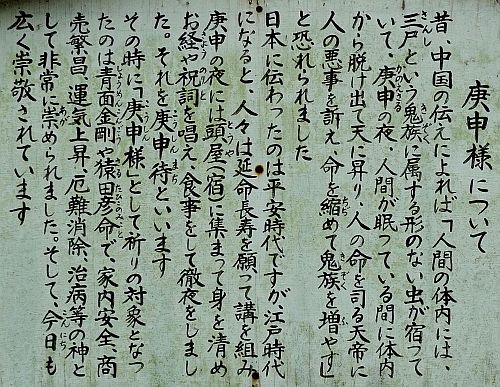 庚申様について
昔 中国の伝えによれば「人間の体内には、
三尸という鬼族に属する形のない虫が宿って
いて、庚申の夜、人間が眠っている間に体内
から脱け出て天に昇り、人の命を司る天帝に
人の悪事を訴え、命を縮めて鬼族を増やす」
と恐れられました
日本に伝わったのは平安時代ですが江戸時代
になると、人々は延命長寿を願って講を組み
庚申の夜には頭屋(宿)に集まって身を清め
お経や祝詞を唱え、食事をして徹夜をしまし
た。それを庚申待といいます
その時に「庚申様」として、祈りの対象となっ
たのは青面金剛や猿田彦命で、家内安全、商
売繁昌、運気上昇、厄難消除、治病等の神と
して非常に崇められました。そして、今日も
広く崇敬されています